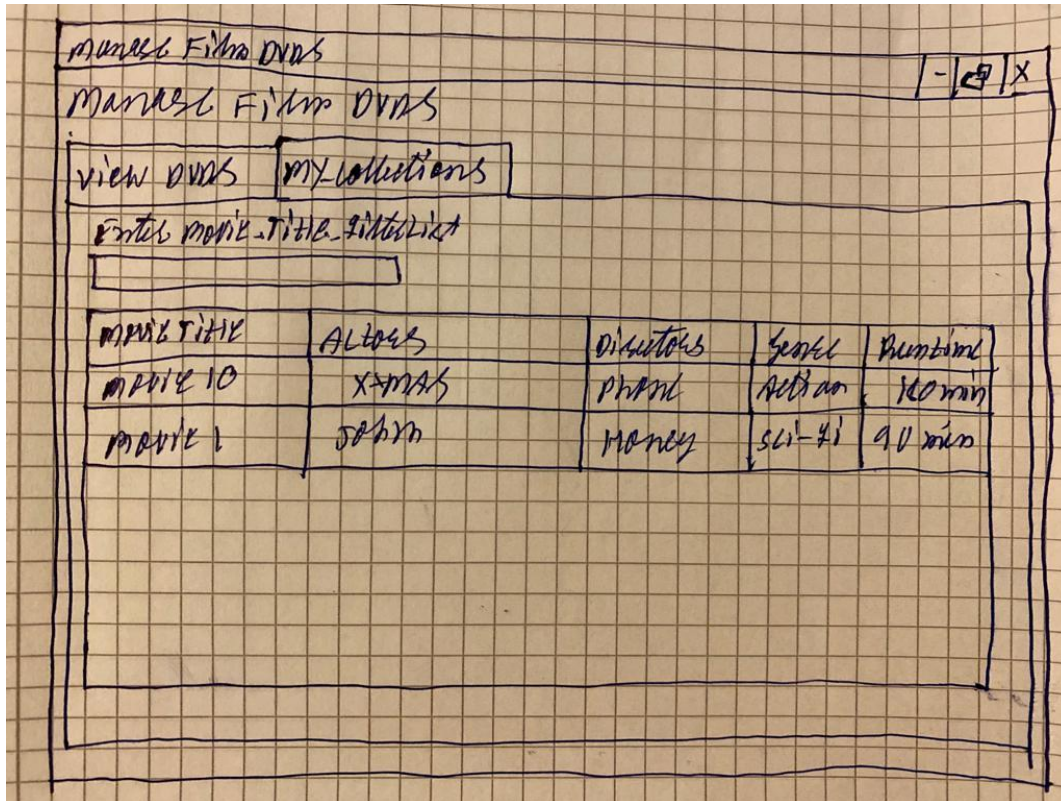 Manage Film DVDs
- X
Manage Film DVDs
View DVDs My-collections
Enter Movie-Title-FilterList
Movie Title Actors Directors Genre Runtime
Movie 10 X-MAS Phone Action 120 min
Movie 1 John Money Sci-Fi 90 min